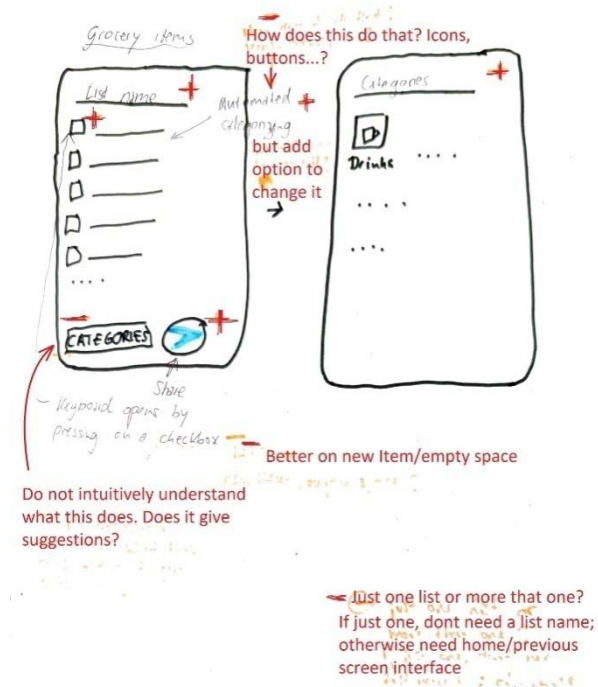 Grocery items
How does this do that? Icons,
buttons...?
List name
Automated
categorizing
but add
option to
change it
Categories
Drinks
CATEGORIES
Share
- Keyboard opens by
pressing on a checkbox
Better on new Item/empty space
Do not intuitively understand
what this does. Does it give
suggestions?
Just one list or more that one?
If just one, dont need a list name;
otherwise need home/previous
screen interface